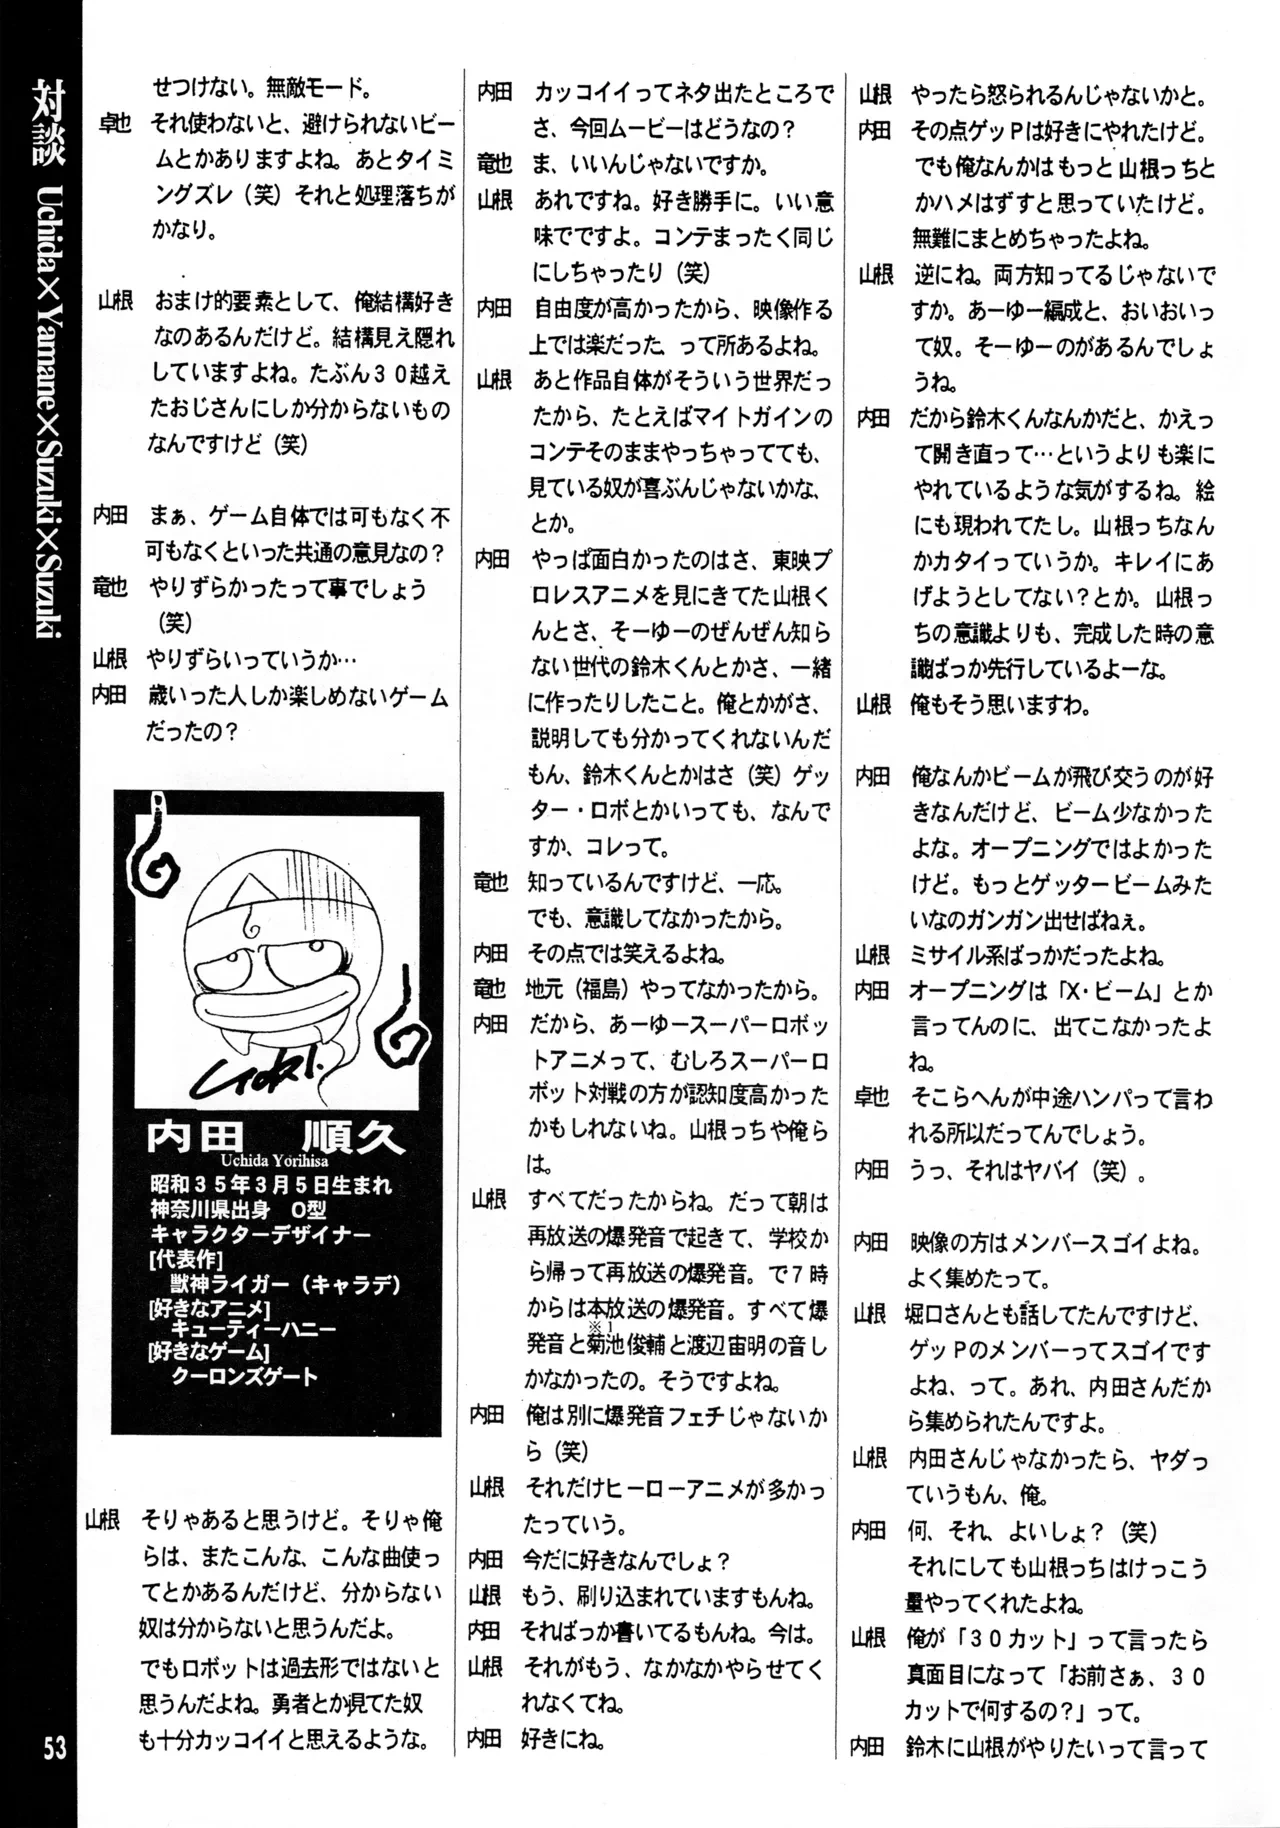 対談 Uchida×Yamane×Suzuki×Suzuki
せつけない。無敵モード。
卓也 それ使わないと、避けられないビー
ムとかありますよね。あとタイミ
ングズレ（笑）それと処理落ちが
かなり。
山根 おまけ的要素として、俺結構好き
なのあるんだけど。結構見え隠れ
していますよね。たぶん３０越え
たおじさんにしか分からないもの
なんですけど（笑）
内田 まぁ、ゲーム自体では可もなく不
可もなくといった共通の意見なの？
竜也 やりずらかったって事でしょう
（笑）
山根 やりずらいっていうか…
内田 歳いった人しか楽しめないゲーム
だったの？
内田 順久
Uchida Yorihisa
昭和３５年３月５日生まれ
神奈川県出身 Ｏ型
キャラクターデザイナー
[代表作]
獣神ライガー（キャラデ）
[好きなアニメ]
キューティーハニー
[好きなゲーム]
クーロンズゲート
山根 そりゃあると思うけど。そりゃ俺
らは、またこんな、こんな曲使っ
てとかあるんだけど、分からない
奴は分からないと思うんだよ。
でもロボットは過去形ではないと
思うんだよね。勇者とか見てた奴
も十分カッコイイと思えるような。
内田 カッコイイってネタ出たところで
さ、今回ムービーはどうなの？
竜也 ま、いいんじゃないですか。
山根 あれですね。好き勝手に。いい意
味でですよ。コンテまったく同じ
にしちゃったり（笑）
内田 自由度が高かったから、映像作る
上では楽だった、って所あるよね。
山根 あと作品自体がそういう世界だっ
たから、たとえばマイトガインの
コンテそのままやっちゃってても、
見ている奴が喜ぶんじゃないかな、
とか。
内田 やっぱ面白かったのはさ、東映プ
ロレスアニメを見にきてた山根く
んとさ、そーゆーのぜんぜん知ら
ない世代の鈴木くんとかさ、一緒
に作ったりしたこと。俺とかがさ、
説明しても分かってくれないんだ
もん、鈴木くんとかはさ（笑）ゲッ
ター・ロボとかいっても、なんで
すか、コレって。
竜也 知っているんですけど、一応。
でも、意識してなかったから。
内田 その点では笑えるよね。
竜也 地元（福島）やってなかったから。
内田 だから、あーゆースーパーロボッ
トアニメって、むしろスーパーロ
ボット対戦の方が認知度高かった
かもしれないね。山根っちや俺ら
は。
山根 すべてだったからね。だって朝は
再放送の爆発音で起きて、学校か
ら帰って再放送の爆発音。で７時
からは本放送の爆発音。すべて爆
※１
発音と菊池俊輔と渡辺宙明の音し
かなかったの。そうですよね。
内田 俺は別に爆発音フェチじゃないか
ら（笑）
山根 それだけヒーローアニメが多かっ
たっていう。
内田 今だに好きなんでしょ？
山根 もう、刷り込まれていますもんね。
内田 そればっか書いてるもんね。今は。
山根 それがもう、なかなかやらせてく
れなくてね。
内田 好きにね。
山根 やったら怒られるんじゃないかと。
内田 その点ゲッＰは好きにやれたけど。
でも俺なんかはもっと山根っちと
かハメはずすと思っていたけど。
無難にまとめちゃったよね。
山根 逆にね。両方知ってるじゃないで
すか。あーゆー編成と、おいおいっ
て奴。そーゆーのがあるんでしょ
うね。
内田 だから鈴木くんなんかだと、かえっ
て開き直って…というよりも楽に
やれているような気がするね。絵
にも現われてたし。山根っちなん
かカタイっていうか。キレイにあ
げようとしてない？とか。山根っ
ちの意識よりも、完成した時の意
識ばっか先行しているよーな。
山根 俺もそう思いますわ。
内田 俺なんかビームが飛び交うのが好
きなんだけど、ビーム少なかった
よな。オープニングではよかった
けど。もっとゲッタービームみた
いなのガンガン出せばねぇ。
山根 ミサイル系ばっかだったよね。
内田 オープニングは「Ｘ・ビーム」とか
言ってんのに、出てこなかったよ
ね。
卓也 そこらへんが中途ハンパって言わ
れる所以だってんでしょう。
内田 うっ、それはヤバイ（笑）。
内田 映像の方はメンバースゴイよね。
よく集めたって。
山根 堀口さんとも話してたんですけど、
ゲッＰのメンバーってスゴイです
よね、って。あれ、内田さんだか
ら集められたんですよ。
山根 内田さんじゃなかったら、ヤダっ
ていうもん、俺。
内田 何、それ、よいしょ？（笑）
それにしても山根っちはけっこう
量やってくれたよね。
山根 俺が「３０カット」って言ったら
真面目になって「お前さぁ、３０
カットで何するの？」って。
内田 鈴木に山根がやりたいって言って
53